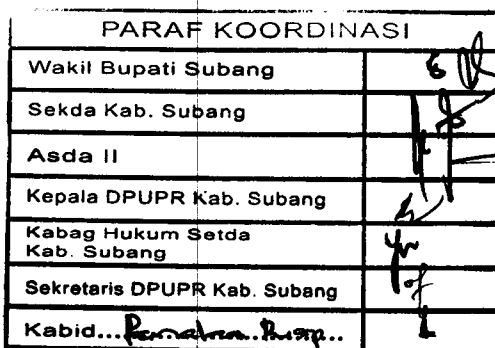 PARAF KOORDINASI
Wakil Bupati Subang
Sekda Kab. Subang
Asda II
Kepala DPUPR Kab. Subang
Kabag Hukum Setda
Kab. Subang
Sekretaris DPUPR Kab. Subang
Kabid...